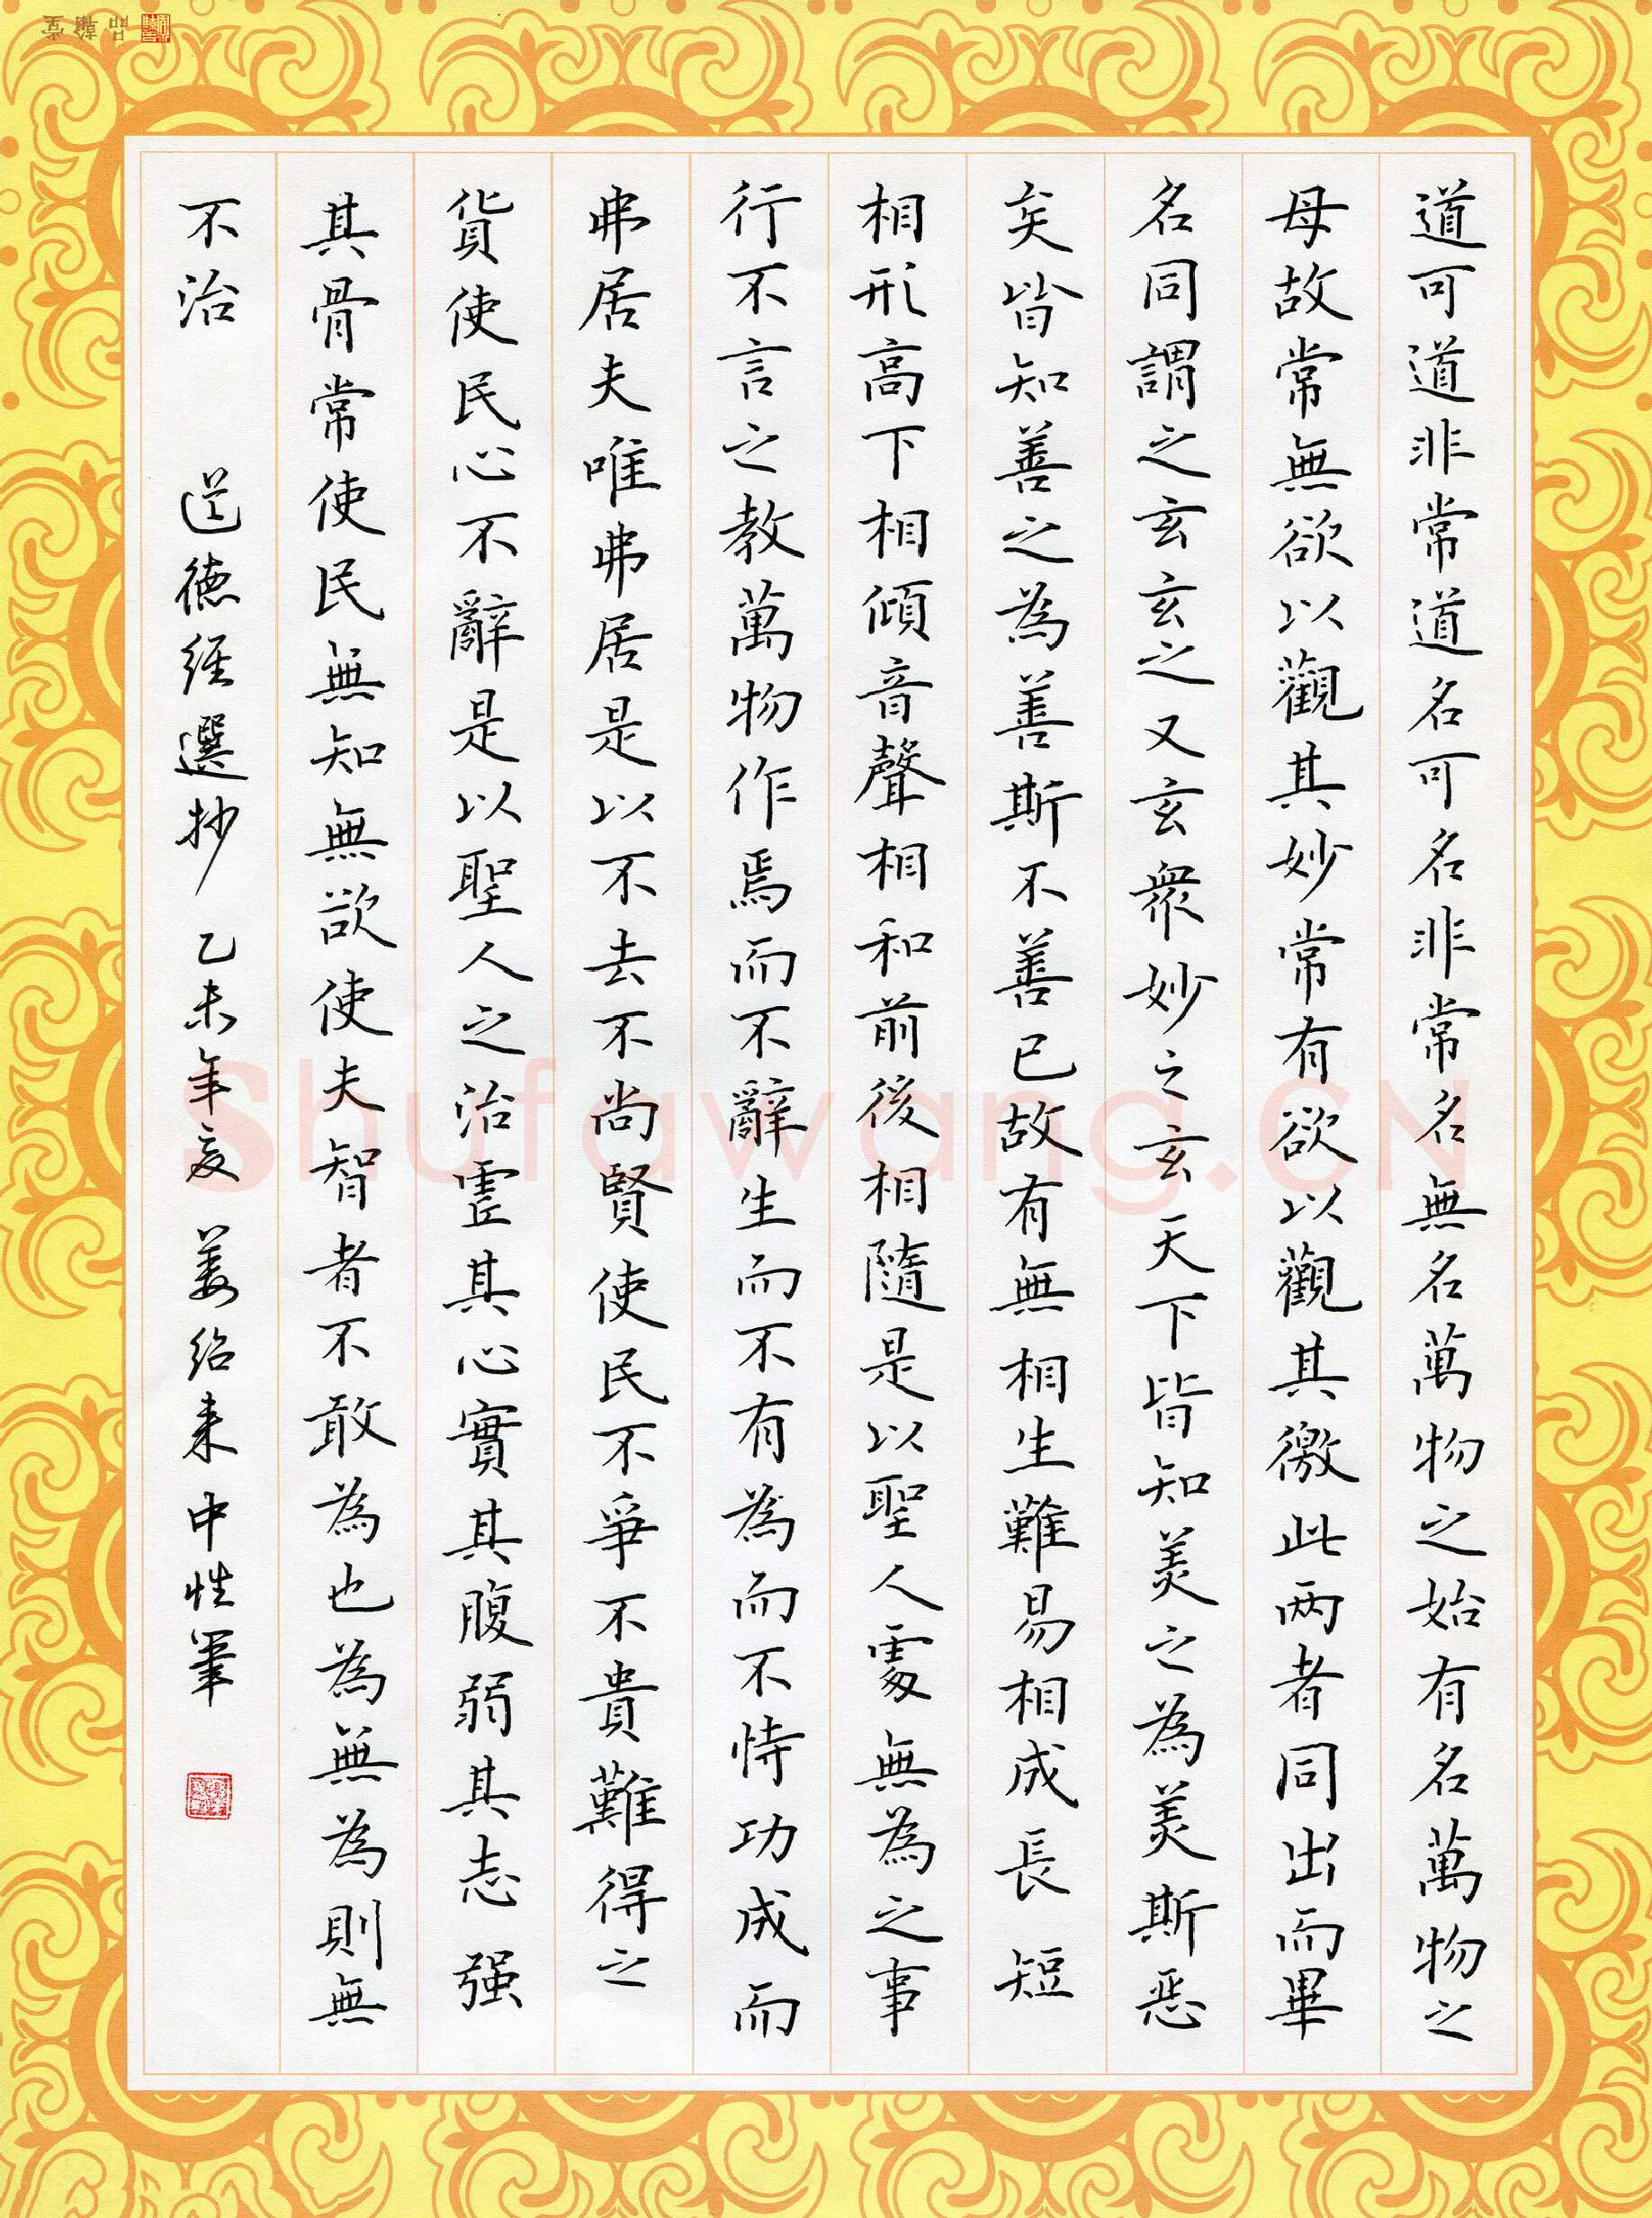 道可道非常道名可名非常名無名萬物之始有名萬物之
母故常無欲以觀其妙常有欲以觀其徼此两者同出而畢
名同謂之玄玄之又玄衆妙之玄天下皆知美之為美斯恶
矣皆知善之為善斯不善已故有無相生難易相成長短
相形高下相傾音聲相和前後相隨是以聖人處無為之事
行不言之教萬物作焉而不辭生而不有為而不恃功成而
弗居夫唯弗居是以不去不尚賢使民不爭不貴難得之
貨使民心不辭是以聖人之治虛其心實其腹弱其志强
其骨常使民無知無欲使夫智者不敢為也為無為則無
不治 道德经選抄 乙未年夏 姜绍来 中性筆
品翰堂
Shufawang.CN